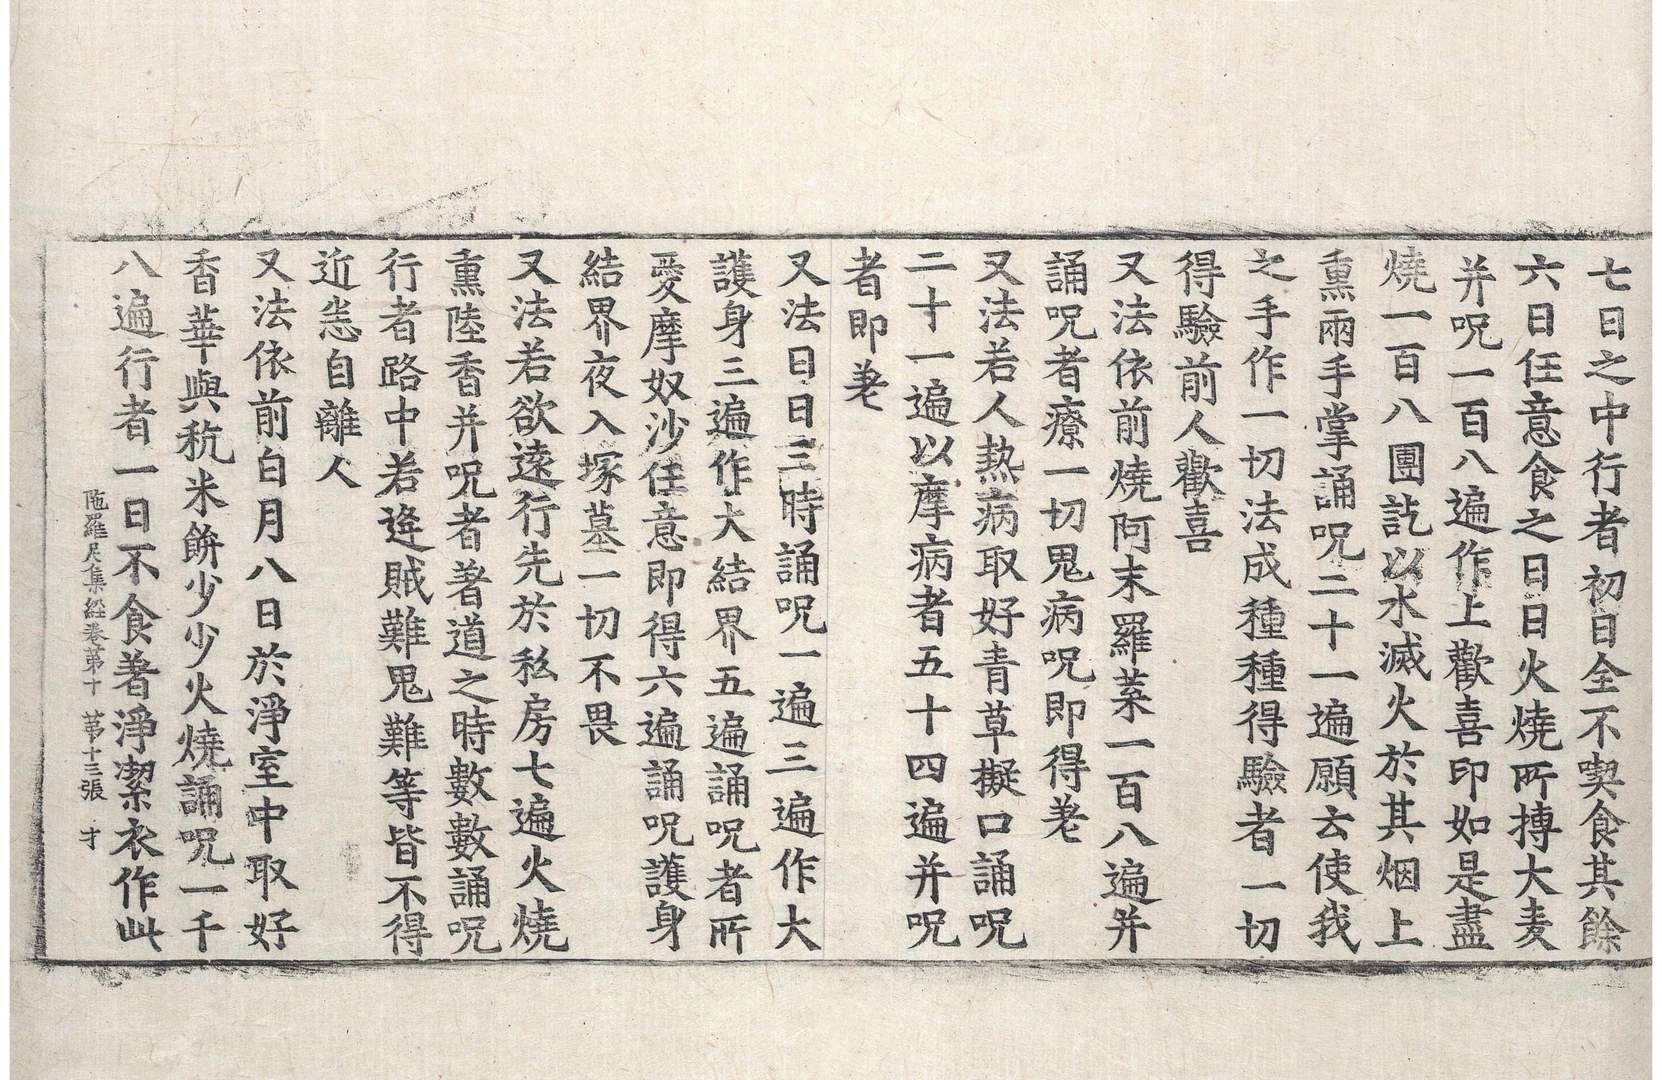 七日之中行者初日全不喫食其餘
六日任意食之日日火燒所摶大麦
并呪一百八遍作上歡喜印如是盡
燒一百八團訖以水滅火於其烟上
熏兩手掌誦呪二十一遍願云使我
之手作一切法成種種得驗者一切
得驗前人歡喜
又法依前燒阿末羅菜一百八遍并
誦呪者療一切鬼病呪即得差
又法若人熱病取好青草擬口誦呪
二十一遍以摩病者五十四遍并呪
者即差
又法日日三時誦呪一遍三遍作大
護身三遍作大結界五遍誦呪者所
憂摩奴沙任意即得六遍誦呪護身
結界夜入塚墓一切不畏
又法若欲遠行先於私房七遍火燒
熏陸香并呪者著道之時數數誦呪
行者路中若逢賊難鬼難等皆不得
近恙自離人
又法依前白月八日於淨室中取好
香華與秔米餅少少火燒誦呪一千
八遍行者一日不食著淨潔衣作此
陁羅尼集經卷第十 第十三張 才